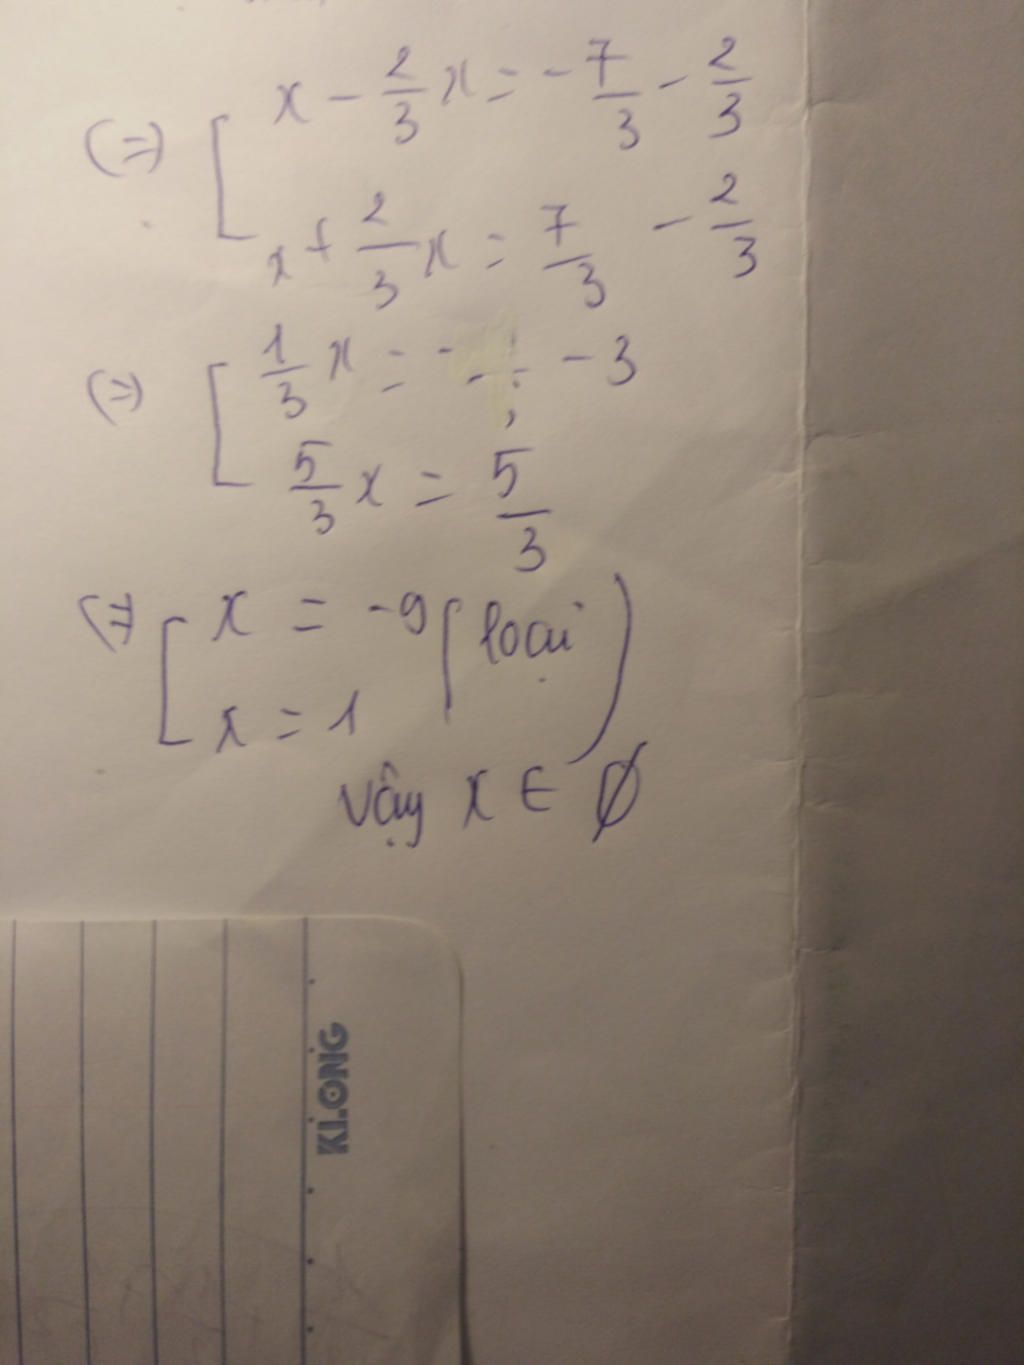 (=) [ x - 2/3 x = - 7/3 - 2/3
x + 2/3 x = 7/3 - 2/3
(=) [ 1/3 x = - - 3
5/3 x = 5/3
(=) [ x = -9 (loại)
x = 1
Vậy x ∈ Ø
KLONG